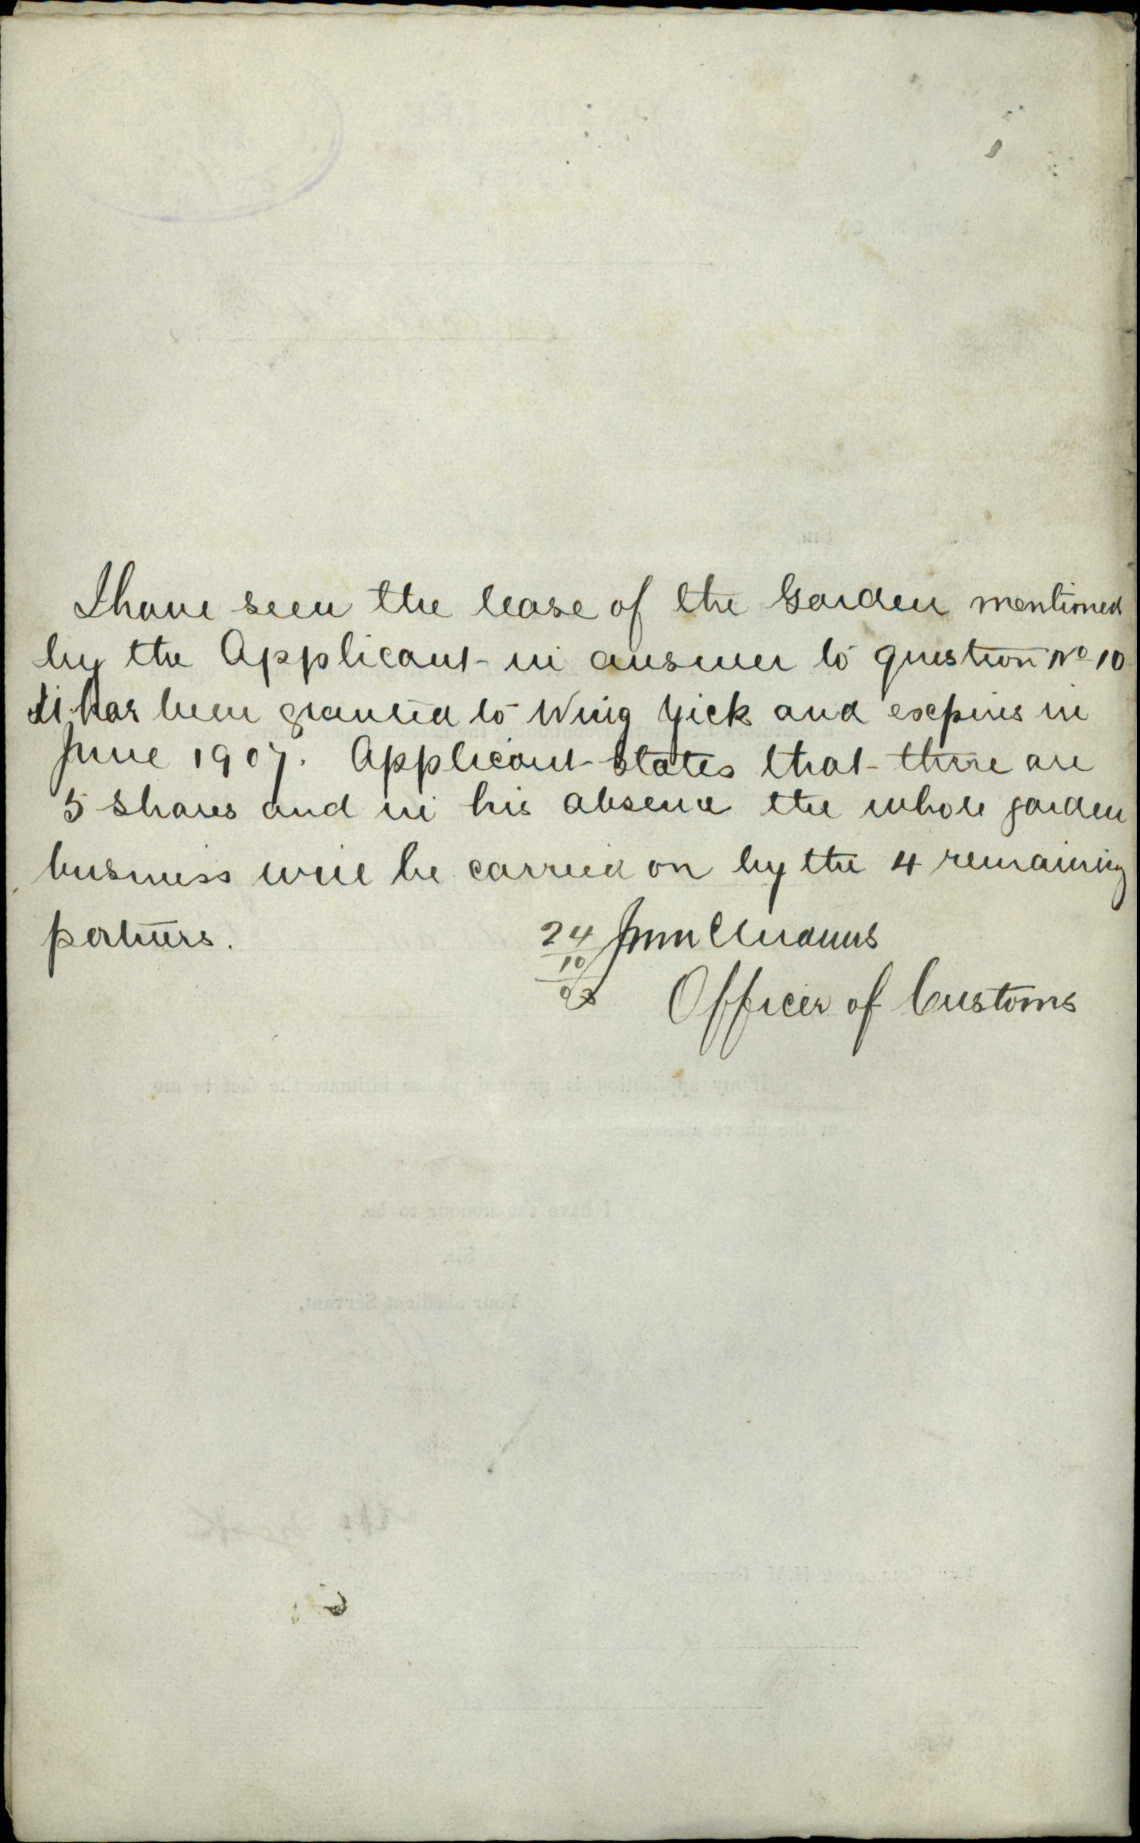 I have seen the lease of the Garden mentioned
by the Applicant in answer to question No 10
It has been granted to Wing Yick and expires in
June 1907. Applicant states that there are
5 shares and in his absence the whole garden
business will be carried on by the 4 remaining
partners.
24
10
03
Officer of Customs